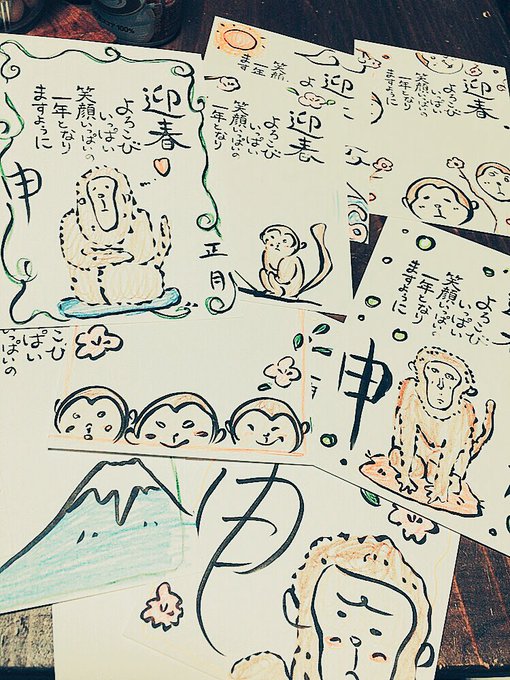 迎春
よろこび
いっぱい
笑顔いっぱいの
一年となり
ますように
申
迎
よ
笑顔
一年
ます
迎春
よろこび
いっぱい
笑顔いっぱいの
一年となり
正月
迎春
よろこび
いっぱい
笑顔いっぱいの
一年となり
ますように
よろこび
いっぱい
笑顔いっぱいの
一年となり
ますように
申
こび
ぱい
いっぱいの
申